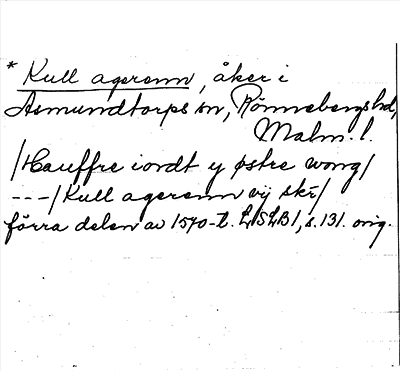 * Kull agerenn, åker i
Asmundtorps sn, Rönnebergs hd,
Malm. l.
/Hauffre iordt y østre wong/
---/Kull agerenn vij skr/
förra delen av 1570-t. LSLB1, s. 131. orig.